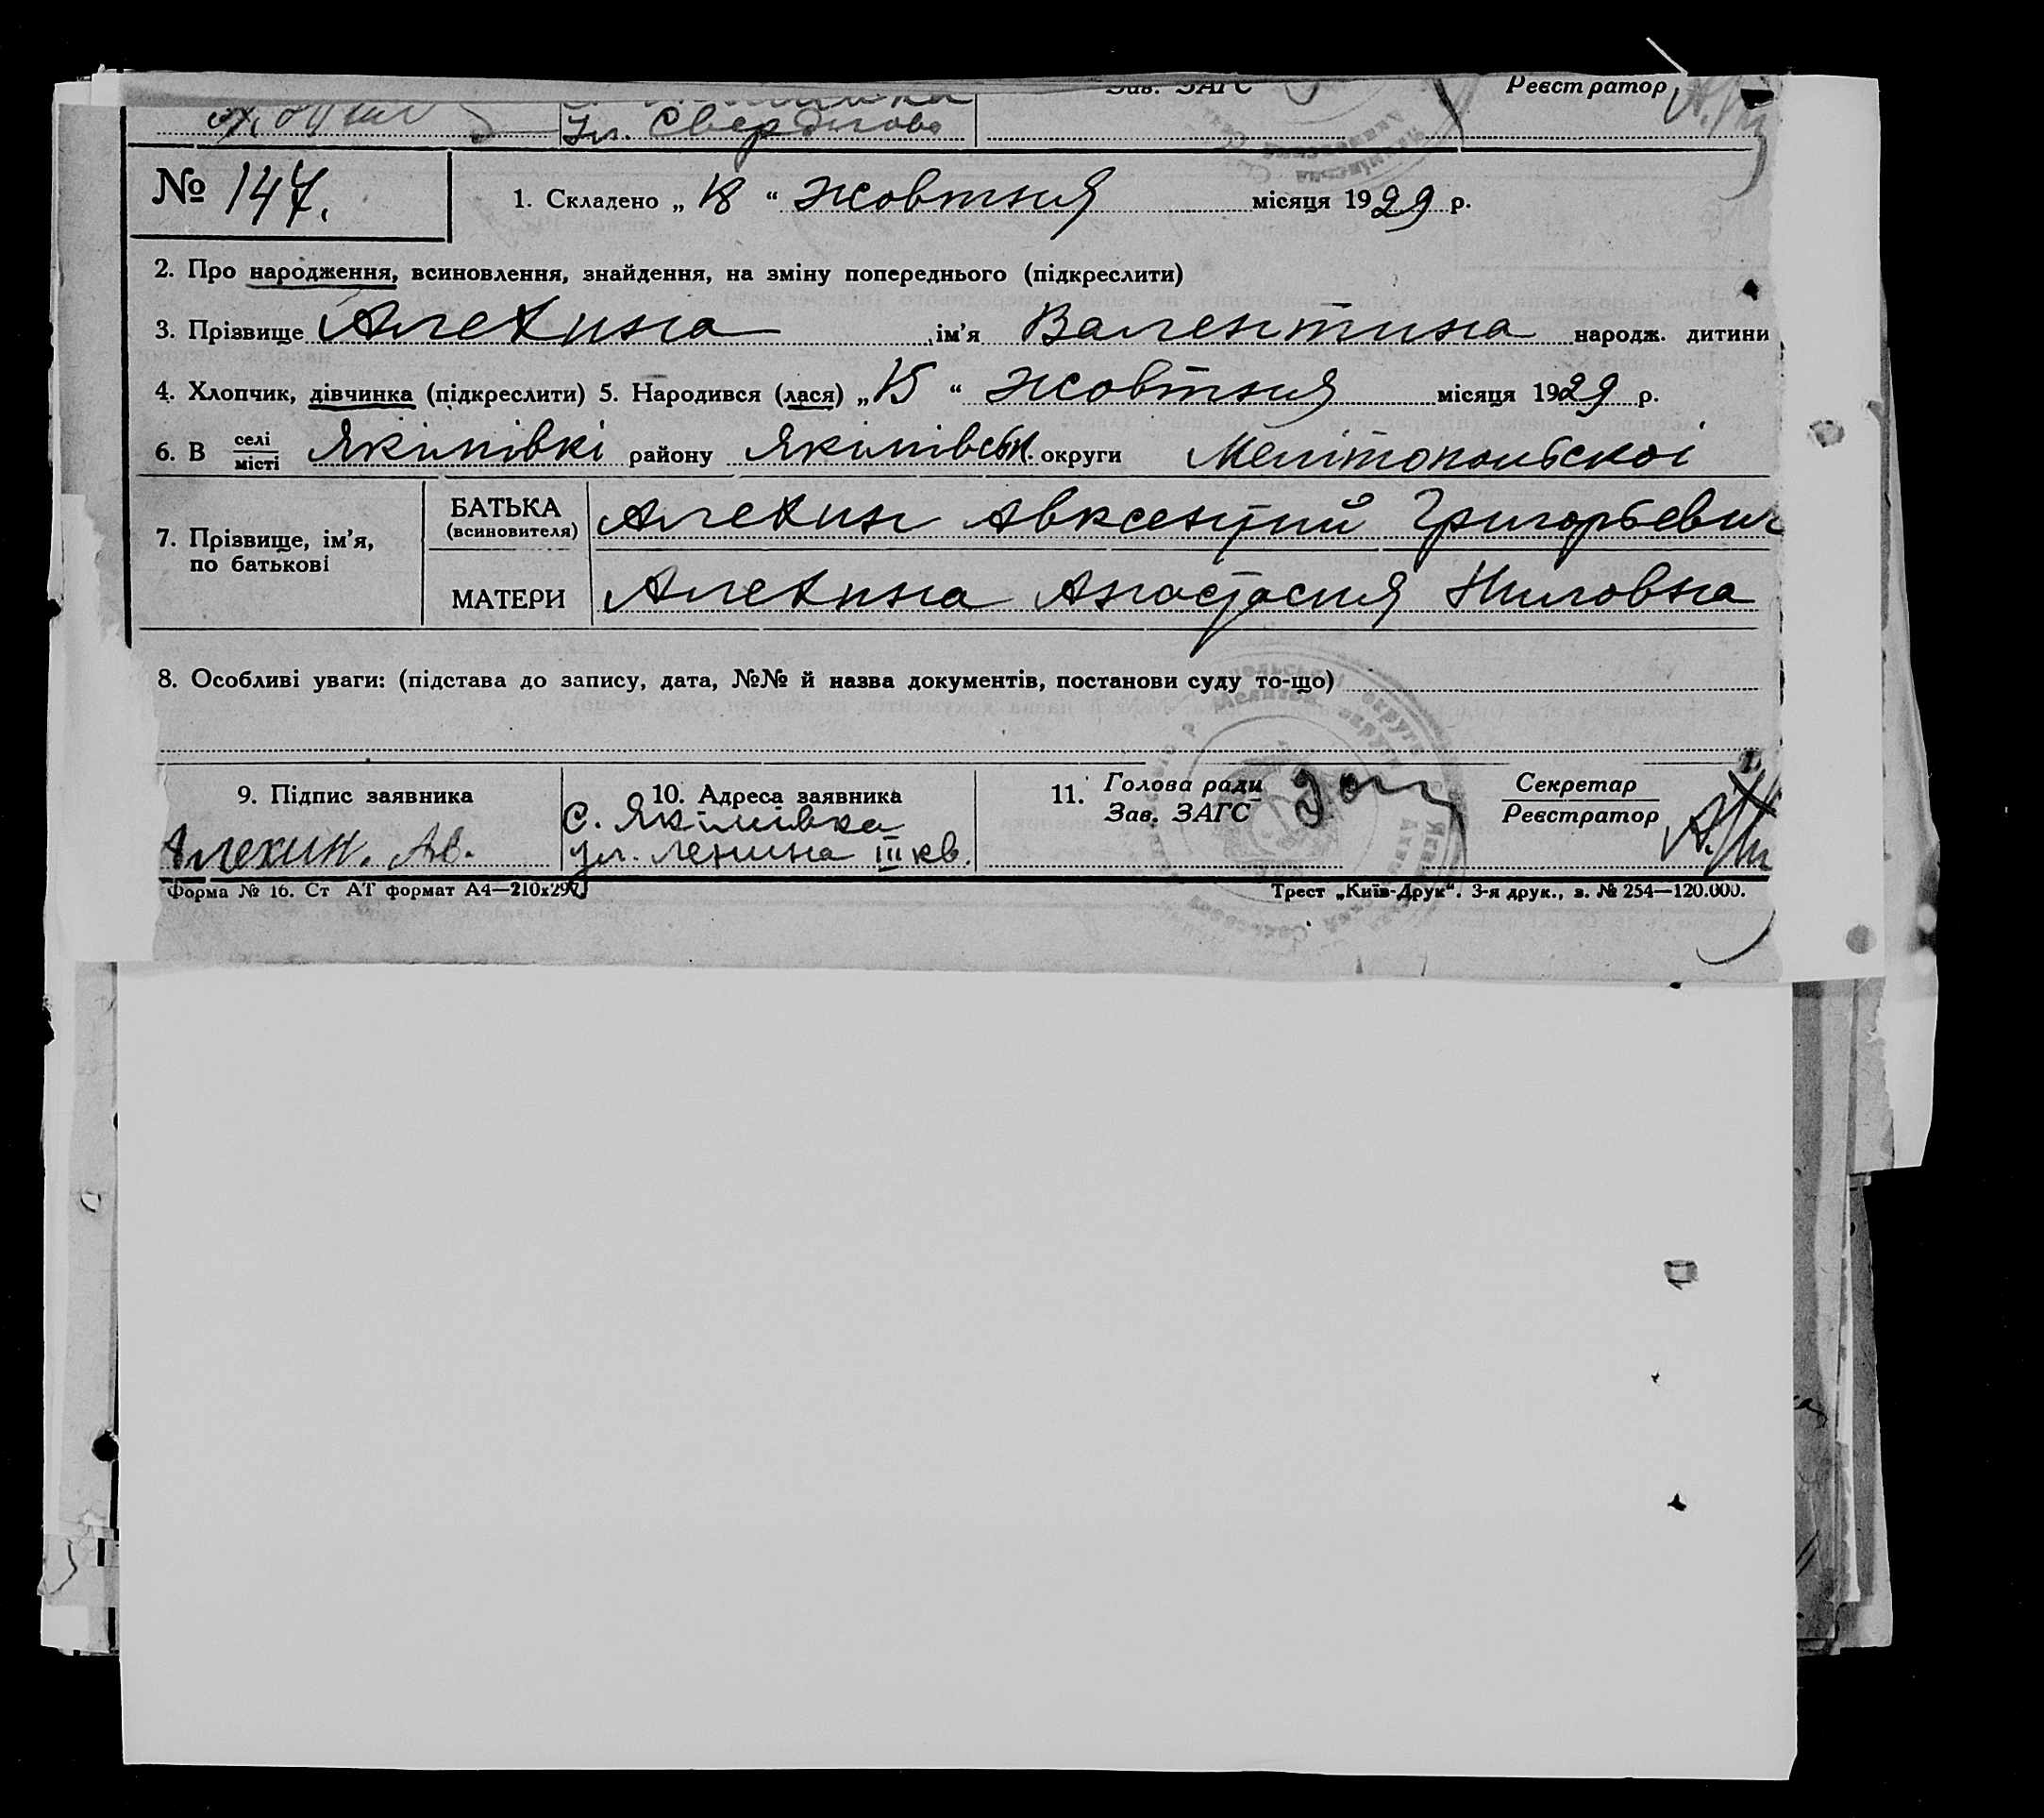 Зав. ЗАГС Реєстратор
Ул. Свердлова
№ 147. 1. Складено „ 18 “ жовтня місяця 1929 р.
2. Про народження, всиновлення, знайдення, на зміну попереднього (підкреслити)
3. Прізвище Алехина ім’я Валентина народж. дитини
4. Хлопчик, дівчинка (підкреслити) 5. Народився (лася) „ 15 “ жовтня місяця 1929 р.
6. В селі місті Якімівкі району Якімівськ. округи Мелітопольскоі
7. Прізвище, ім’я, по батькові
БАТЬКА (всиновителя) Алехин Авксентий Григорьевич
МАТЕРИ Алехина Анастасия Ниловна
8. Особливі уваги: (підстава до запису, дата, №№ й назва документів, постанови суду то-що)
9. Підпис заявника 10. Адреса заявника 11. Голова ради Зав. ЗАГС Секретар Реєстратор
Алехин. Ав. С. Якімівка
ул. Ленина III кв.
Форма № 16. Ст АТ формат А4—210х297 Трест „Київ-Друк“. 3-я друк., з. № 254—120.000.